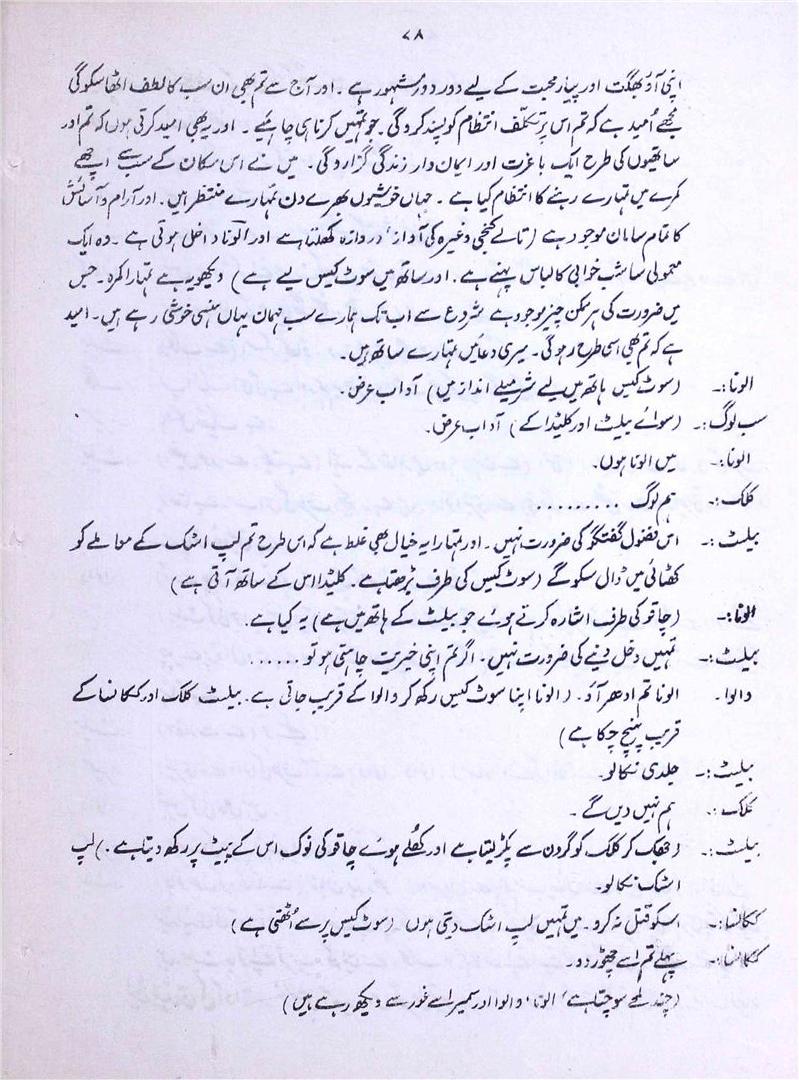 ۷۸
اپنی آؤ بھگت اور پیار محبت کے لیے دور دور مشہور ہے ۔ اور آج سے تم بھی ان سب کا لطف اٹھا سکو گی
مجھے اُمید ہے کہ تم اس پر تکلّف انتظام کو پسند کرو گی ۔ جو تمہیں کرنا ہی چاہیے ۔ اور یہ بھی امید کرتی ہوں کہ تم اور
ساتھیوں کی طرح ایک باعزت اور ایمان دار زندگی گزارو گی ۔ میں نے اس مکان کے سب سے اچھے
کمرے میں تمہارے رہنے کا انتظام کیا ہے ۔ جہاں خوشیوں بھرے دن تمہارے منتظر ہیں ۔ اور آرام و آسائش
کا تمام سامان موجود ہے (تالے کنجی وغیرہ کی آواز ' دروازہ کھلتا ہے اور الونا داخل ہوتی ہے ۔ وہ ایک
معمولی سا شب خوابی کا لباس پہنے ہے ۔ اور ساتھ میں سوٹ کیس لیے ہے) دیکھو یہ ہے تمہارا کمرہ ۔ جس
میں ضرورت کی ہر ممکن چیز موجود ہے شروع سے اب تک ہمارے سب مہمان یہاں ہنسی خوشی رہے ہیں ۔ امید
ہے کہ تم بھی اسی طرح رہو گی ۔ میری دعائیں تمہارے ساتھ ہیں ۔
الونا :۔ (سوٹ کیس ہاتھ میں لیے شرمیلے انداز میں) آداب عرض ۔
سب لوگ :۔ (سوائے بیلٹ اور کلیڈا کے) آداب عرض ۔
الونا :۔ میں الونا ہوں ۔
کلک :۔ ہم لوگ ..........
بیلٹ :۔ اس فضول گفتگو کی ضرورت نہیں ۔ اور تمہارا یہ خیال بھی غلط ہے کہ اس طرح تم لپ اشک کے معاملے کو
کھٹائی میں ڈال سکو گے (سوٹ کیس کی طرف بڑھتا ہے ۔ کلیڈا اس کے ساتھ آتی ہے)
الونا :۔ (چاقو کی طرف اشارہ کرتے ہوئے جو بیلٹ کے ہاتھ میں ہے) یہ کیا ہے ۔
بیلٹ :۔ تمہیں دخل دینے کی ضرورت نہیں ۔ اگر تم اپنی خیریت چاہتی ہو تو ......
والوا ۔ الونا تم ادھر آؤ ۔ (الونا اپنا سوٹ کیس رکھ کر والوا کے قریب جاتی ہے ۔ بیلٹ کلک اور ککالنا کے
قریب پہنچ چکا ہے)
بیلٹ :۔ جلدی نکالو ۔
کلک :۔ ہم نہیں دیں گے ۔
بیلٹ :۔ (جھک کر کلک کو گردن سے پکڑ لیتا ہے اور کھلے ہوئے چاقو کی نوک اس کے پیٹ پر رکھ دیتا ہے ۔) لپ
اشک نکالو ۔
ککالنا :۔ اسکو قتل نہ کرو ۔ میں تمہیں لپ اشک دیتی ہوں (سوٹ کیس پر سے اُٹھتی ہے)
ککالنا :۔ پہلے تم اسے چھوڑ دو ۔
(چند لمحے سوچتا ہے ' الونا ' والوا اور سمیر اسے غور سے دیکھ رہے ہیں)